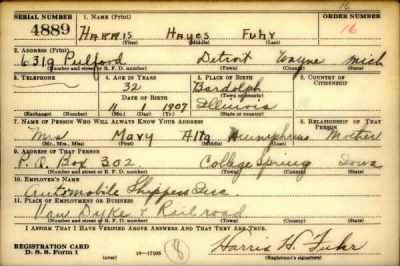 16
SERIAL NUMBER 1. NAME (Print) ORDER NUMBER
4889 Harris Hayes Fuhr 16
(First) (Middle) (Last)
2. ADDRESS (Print)
6319 Pulford Detroit Wayne Mich
(Number and street or R. F. D. number) (Town) (County) (State)
3. TELEPHONE 4. AGE IN YEARS 5. PLACE OF BIRTH 6. COUNTRY OF CITIZENSHIP
32 Bardolph
DATE OF BIRTH (Town or county)
11 1 1907 Illinois
(Exchange) (Number) (Mo.) (Day) (Yr.) (State or country)
7. NAME OF PERSON WHO WILL ALWAYS KNOW YOUR ADDRESS 8. RELATIONSHIP OF THAT PERSON
Mrs Mary Alta Mother
(Mr., Mrs., Miss) (First) (Middle) (Last)
9. ADDRESS OF THAT PERSON
P.O. Box 302 College Spring Iowa
(Number and street or R. F. D. number) (Town) (County) (State)
10. EMPLOYER'S NAME
Automobile Shippers Inc.
11. PLACE OF EMPLOYMENT OR BUSINESS
Van Dyke Railroad
(Number and street or R. F. D. number) (Town) (County) (State)
I AFFIRM THAT I HAVE VERIFIED ABOVE ANSWERS AND THAT THEY ARE TRUE.
REGISTRATION CARD
D. S. S. Form 1 16—17105 8 Harris H. Fuhr
(Registrant's signature)